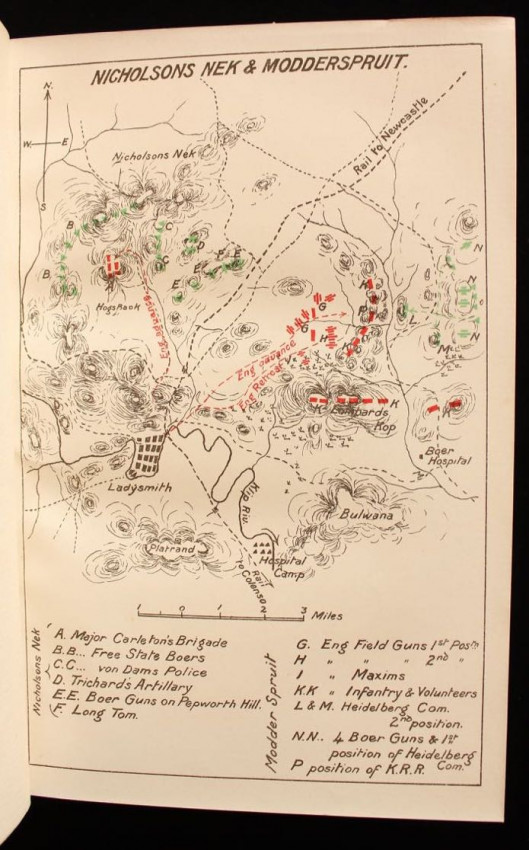 NICHOLSONS NEK & MODDERSPRUIT.
N.
W.
E
S
Rail to Newcastle
Nicholsons Nek
B
C
D
B
C
E
E
F
E
E
A
Hogsback
Eng advance
K
P
G
G
H
K
K
L
N
N
N
M
Eng advance
Eng Retreat
K
Lombards
Kop
K
K
Boer
Hospital
Ladysmith
Klip Riv.
Bulwana
Platrand
Hospital
Camp
Rail
to Colenso
1 0 1 2 3 Miles
Nicholsons Nek
A. Major Carleton's Brigade
B.B... Free State Boers
C.C... von Dams Police
D. Trichards Artillary
E.E. Boer Guns on Pepworth Hill.
F. Long Tom.
Modder Spruit
G. Eng Field Guns 1st Posn
H " " " 2nd "
I " Maxims
KK " Infantry & Volunteers
L & M. Heidelberg Com.
2nd position.
N.N.. 4 Boer Guns & 1st
position of Heidelberg
Com.
P position of K.R.R.